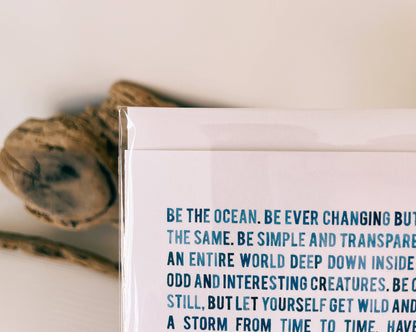 BE THE OCEAN. BE EVER CHANGING BUT
THE SAME. BE SIMPLE AND TRANSPARE
AN ENTIRE WORLD DEEP DOWN INSIDE
ODD AND INTERESTING CREATURES. BE
STILL, BUT LET YOURSELF GET WILD AND
A STORM FROM TIME TO TIME. HAV